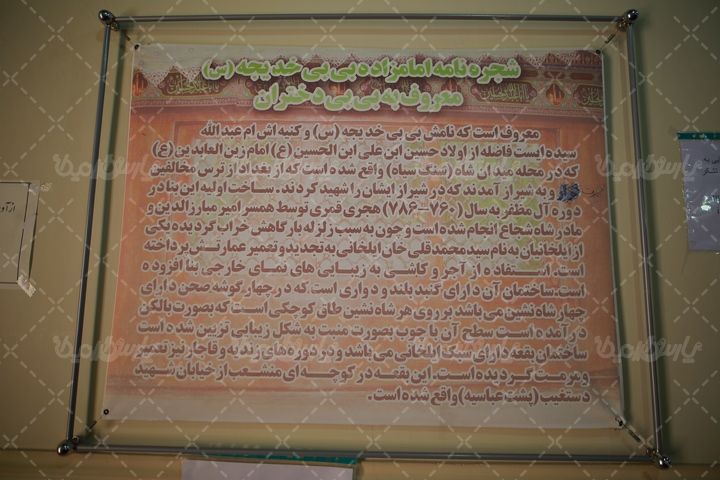 شجره نامه امامزاده بی بی خدیجه (س)
معروف به بی بی دختران
معروف است که نامش بی بی خدیجه (س) و کنیه اش ام عبدالله
سیده ایست فاضله از اولاد حسین ابن علی ابن الحسین (ع) امام زین العابدین (ع)
که در محله میدان شاه (سنگ سیاه) واقع شده است که از بغداد از ترس مخالفین
به شیراز آمدند که در شیراز ایشان را شهید کردند. ساخت اولیه این بنا در
دوره آل مظفر به سال (۷۶۰–۷۸۶) هجری قمری توسط همسر امیر مبارزالدین و
مادر شاه شجاع انجام شده است و چون به سبب زلزله بارگاهش خراب گردیده یکی
از ایلخانیان به نام سید محمدقلی خان ایلخانی به تجدید و تعمیر عمارتش پرداخته
است. استفاده از آجر و کاشی به زیبایی های نمای خارجی بنا افزوده
است. ساختمان آن دارای گنبد بلند و دواری است که در چهار گوشه صحن دارای
چهار شاه نشین می باشد بر روی هر شاه نشین طاق کوچکی است که بصورت بالکن
درآمده است سطح آن با چوب بصورت منبت به شکل زیبایی تزیین شده است
ساختمان بقعه دارای سبک ایلخانی می باشد و در دوره های زندیه و قاجار نیز تعمیر
و مرمت گردیده است. این بقعه در کوچه ای منشعب از خیابان شهید
دستغیب (پشت عباسیه) واقع شده است.